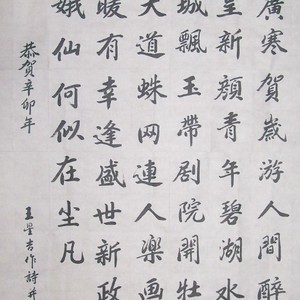 廣寒賀歲游人間醉
呈新顏青年碧湖水
城飄玉帶剧院開牡
大道蛛网連人楽画
暖有幸逢盛世新政
娥仙何似在尘凡
恭贺辛卯年
王星吉作詩并